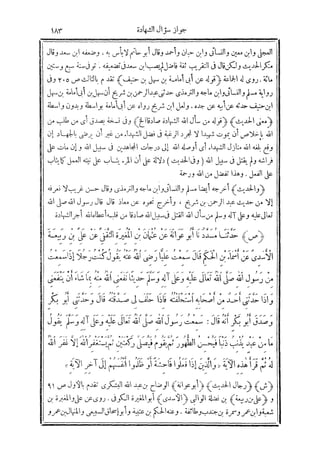 جواز سؤال الشهادة ١٨٣
العجلى وابن معين والنسائى وابن حبان وأحمد وقال أبو حاتم لا بأس به . وضعفه ابن سعد وقال
منكر الحديث ولكن قال فى التقريب ثقة فاضل لم يصب ابن سعد فى تضعيفه . توفى سنة سبع وستين
مائة . روى له الجماعة ﴿قوله عن أبى أمامة بن سهل بن حنيف﴾ تقدم بالثالث ص ٣٠٥ وفى
رواية مسلم والنسائى وابن ماجه والترمذى حدثنى عبد الرحمن بن شريح أن سهل بن أبى أمامة بن سهل
ابن حنيف حدثه عن أبيه عن جده . ولعل ابن شريح رواه عن أبى أمامة بواسطة وبدون واسطة
﴿معنى الحديث﴾ ﴿قوله من سأل الله الشهادة صادقا الخ﴾ وفى نسخة بصدق أى من طلب من
الله بإخلاص أن يموت شهيدا لا لمجرد الرغبة فى فضل الشهداء من غير أن يرضى بالجهاد إن
وقع بلغه الله منازل الشهداء أى أوصله الله إلى درجات المجاهدين فى سبيل الله وإن مات على
فراشه ولم يقتل فى سبيل الله ﴿وفى الحديث﴾ دلالة على أن المرء يثاب على نيته العمل كما يثاب
على الفعل . وهذا تفضل من الله ورحمة
﴿والحديث﴾ أخرجه أيضا مسلم والنسائى وابن ماجه والترمذى وقال حسن غريب لا نعرفه
إلا من حديث عبد الرحمن بن شريح ، وأخرج نحوه عن معاذ قال قال رسول الله صلى الله
تعالى عليه وعلى آله وسلم من سأل الله القتل فى سبيل الله صادقا من قلبه أعطاه الله أجر الشهادة
﴿ص﴾ حَدَّثَنَا مُسَدَّدٌ نَا أَبُو عَوَانَةَ عَنْ عُثْمَانَ بْنِ الْمُغِيرَةِ الثَّقَفِىِّ عَنْ عَلِىِّ بْنِ رَبِيعَةَ
الْأَسَدِىِّ عَنْ أَسْمَاءَ بْنِ الْحَكَمِ قَالَ سَمِعْتُ عَلِيًّا رَضِىَ اللهُ عَنْهُ يَقُولُ كُنْتُ رَجُلًا إِذَا سَمِعْتُ
مِنْ رَسُولِ اللهِ صَلَّى اللهُ تَعَالَى عَلَيْهِ وَعَلَى آلِهِ وَسَلَّمَ حَدِيثًا نَفَعَنِى اللهُ مِنْهُ بِمَا شَاءَ أَنْ يَنْفَعَنِى
وَإِذَا حَدَّثَنِى أَحَدٌ مِنْ أَصْحَابِهِ اسْتَحْلَفْتُهُ فَإِذَا حَلَفَ لِى صَدَّقْتُهُ قَالَ وَحَدَّثَنِى أَبُو بَكْرٍ
وَصَدَقَ أَبُو بَكْرٍ أَنَّهُ قَالَ : سَمِعْتُ رَسُولَ اللهِ صَلَّى اللهُ تَعَالَى عَلَيْهِ وَعَلَى آلِهِ وَسَلَّمَ يَقُولُ
مَا مِنْ عَبْدٍ يُذْنِبُ ذَنْبًا فَيُحْسِنُ الطُّهُورَ ثُمَّ يَقُومُ فَيُصَلِّى رَكْعَتَيْنِ ثُمَّ يَسْتَغْفِرُ اللهَ إِلَّا غَفَرَ اللهُ
لَهُ ثُمَّ قَرَأَ هَذِهِ الْآيَةَ ﴿وَالَّذِينَ إِذَا فَعَلُوا فَاحِشَةً أَوْ ظَلَمُوا أَنْفُسَهُمْ إِلَى آخِرِ الْآيَةِ﴾
﴿ش﴾ ﴿رجال الحديث﴾ ﴿أبو عوانة﴾ الوضاح بن عبد الله اليشكرى تقدم بالأول ص ٩١
و ﴿على بن ربيعة﴾ بن نضلة الوالبى ﴿الأسدى﴾ أبو المغيرة الكوفى . روى عن على والمغيرة بن
شعبة وابن عمر وسمرة بن جندب وطائفة . وعنه الحكم بن عتيبة وأبو إسحاق السبيعى والمنهال بن عمرو